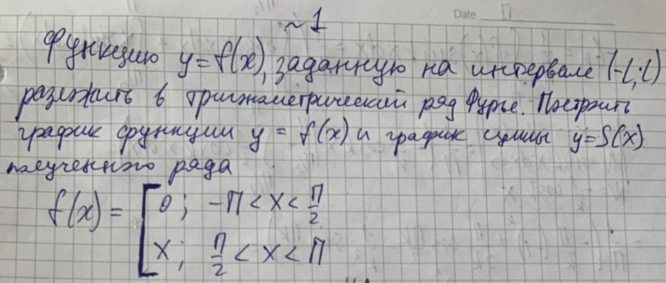 Date
~1
Функцию y=f(x), заданную на интервале (-l; l)
разложить в тригонометрический ряд Фурье. Построить
график функции y = f(x) и график суммы y=S(x)
полученного ряда
f(x) = [0; -π < x < π/2
x; π/2 < x < π